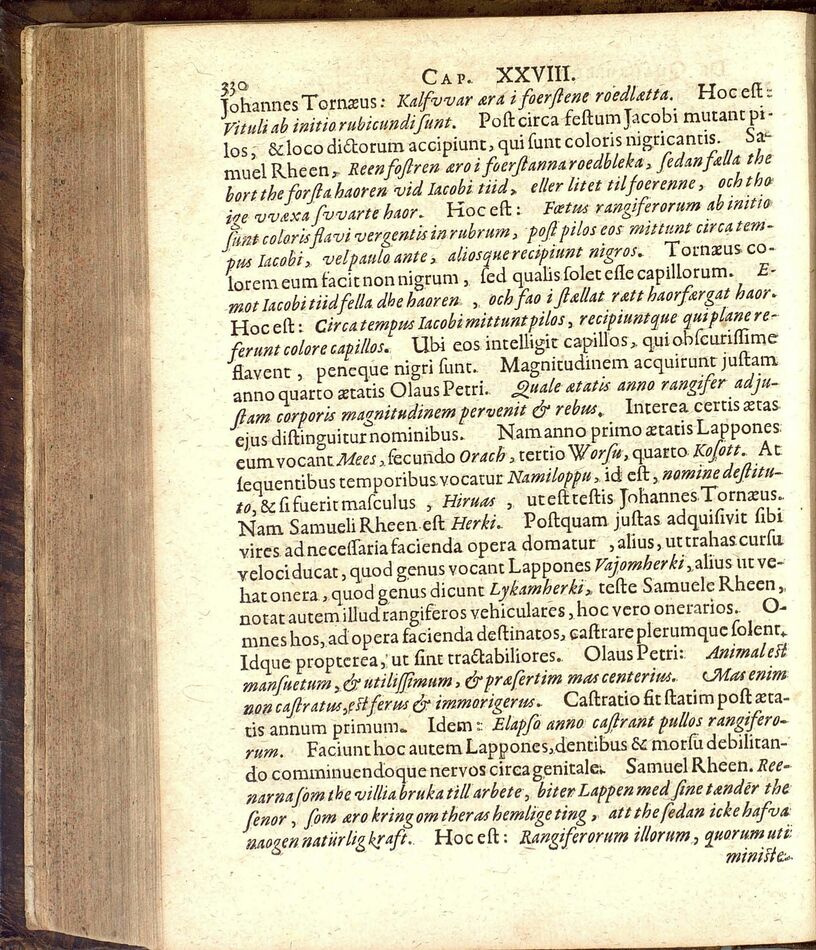 330 CAP. XXVIII.
Johannes Tornæus: Kalfvvar æra i foerſtene roedlætta. Hoc eſt:
Vituli ab initio rubicundi ſunt. Poſt circa feſtum Jacobi mutant pi-
los, & loco dictorum accipiunt, qui ſunt coloris nigricantis. Sa-
muel Rheen, Reenfoſtren æro i foerſtanna roedbleka, ſedan fælla the
bort the forſta haoren vid Iacobi tiid, eller litet til foerenne, och tho
ige vvæxa ſvvarte haor. Hoc eſt: Fœtus rangiferorum ab initio
ſunt coloris flavi vergentis in rubrum, poſt pilos eos mittunt circa tem-
pus Iacobi, vel paulo ante, aliosque recipiunt nigros. Tornæus co-
lorem eum facit non nigrum, ſed qualis ſolet eſſe capillorum. E-
mot Iacobi tiid fella dhe haoren , och ſao i ſtællat rætt haorfærgat haor.
Hoc eſt: Circa tempus Iacobi mittunt pilos, recipiuntque qui plane re-
ferunt colore capillos. Ubi eos intelligit capillos, qui obſcuriſſime
flavent, peneque nigri ſunt. Magnitudinem acquirunt juſtam
anno quarto ætatis Olaus Petri. Quale ætatis anno rangifer ad ju-
ſtam corporis magnitudinem pervenit & rebus. Interea certis ætas
ejus diſtinguitur nominibus. Nam anno primo ætatis Lappones
eum vocant Mees, ſecundo Orach, tertio Worſu, quarto Koſott. At
ſequentibus temporibus vocatur Namiloppu, id eſt, nomine deſtitu-
to, & ſi fuerit maſculus , Hiruas , ut eſt teſtis Johannes Tornæus.
Nam Samueli Rheen eſt Herki. Poſtquam juſtas adquiſivit ſibi
vires ad neceſſaria facienda opera domatur , alius, ut trahas curſu
veloci ducat, quod genus vocant Lappones Vajomherki, alius ut ve-
hat onera, quod genus dicunt Lykamherki, teſte Samuele Rheen,
notat autem illud rangiferos vehiculares, hoc vero onerarios. O-
mnes hos, ad opera facienda deſtinatos, caſtrare plerumque ſolent.
Idque propterea, ut ſint tractabiliores. Olaus Petri: Animal eſt
manſuetum, & utiliſſimum, & præſertim mas centerius. Mas enim
non caſtratus, eſt ferus & immorigerus. Caſtratio fit ſtatim poſt æta-
tis annum primum. Idem: Elapſo anno caſtrant pullos rangifero-
rum. Faciunt hoc autem Lappones, dentibus & morſu debilitan-
do comminuendoque nervos circa genitale. Samuel Rheen. Ree-
narna ſom the villia bruka till arbete, biter Lappen med ſine tænder the
ſenor, ſom æro kring om theras hemlige ting, att the ſedan icke hafva
naogen natürlig kraft. Hoc eſt: Rangiferorum illorum, quorum uti
miniſte-